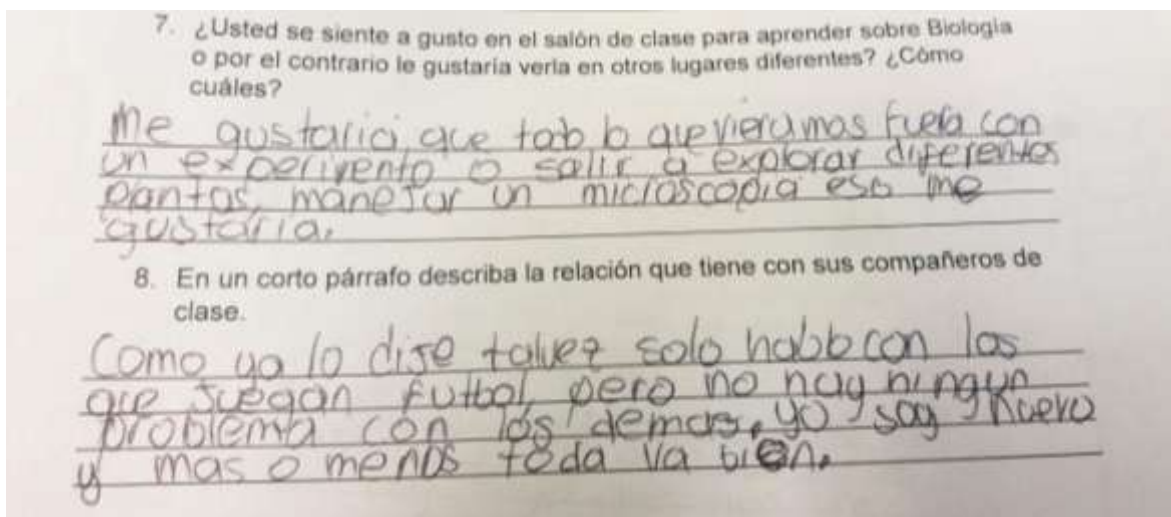 7. ¿Usted se siente a gusto en el salón de clase para aprender sobre Biología
o por el contrario le gustaría verla en otros lugares diferentes? ¿Cómo
cuáles?
Me gustaria que todo lo que vieramos fuera con
un experimento o salir a explorar diferentes
plantas, manejar un microscopia eso me
gustaria.
8. En un corto párrafo describa la relación que tiene con sus compañeros de
clase.
Como ya lo dije talvez solo hablo con los
que juegan futbol, pero no hay ningun
problema con los demas, yo soy nuevo
y mas o menos toda va bien.